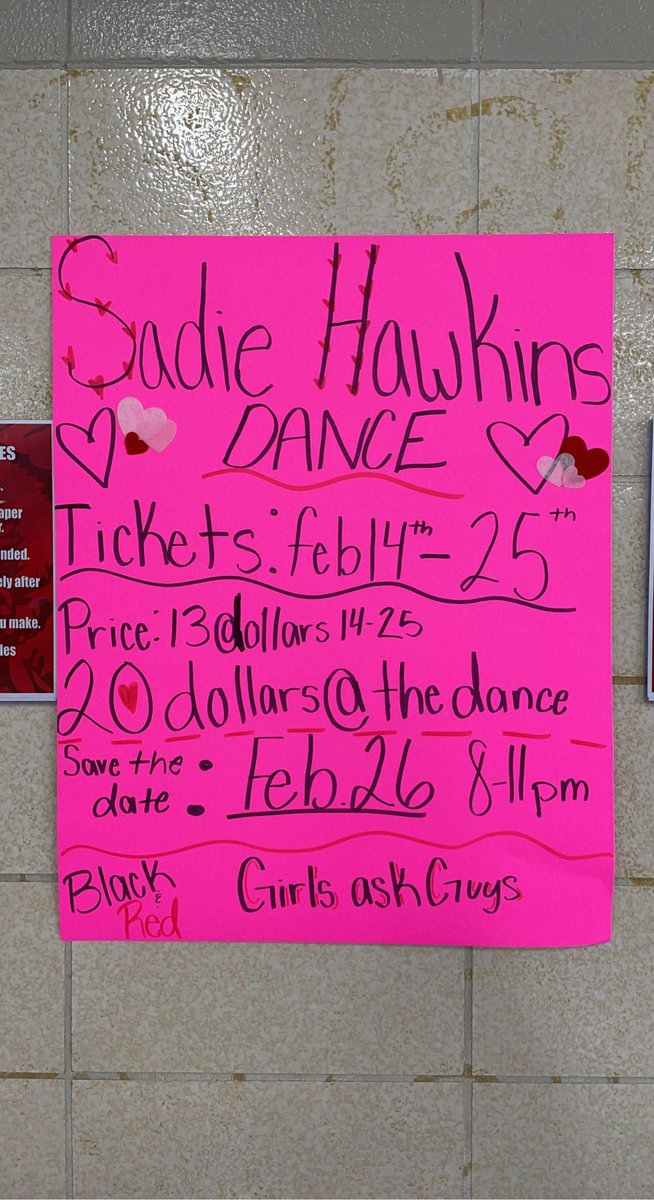 Sadie Hawkins
DANCE
Tickets: feb 14th - 25th
Price: 13 dollars 14-25
20 dollars @ the dance
Save the date : Feb. 26 8-11pm
Black & Red
Girls ask Guys
ES
aper
nded.
ely after
u make.
les